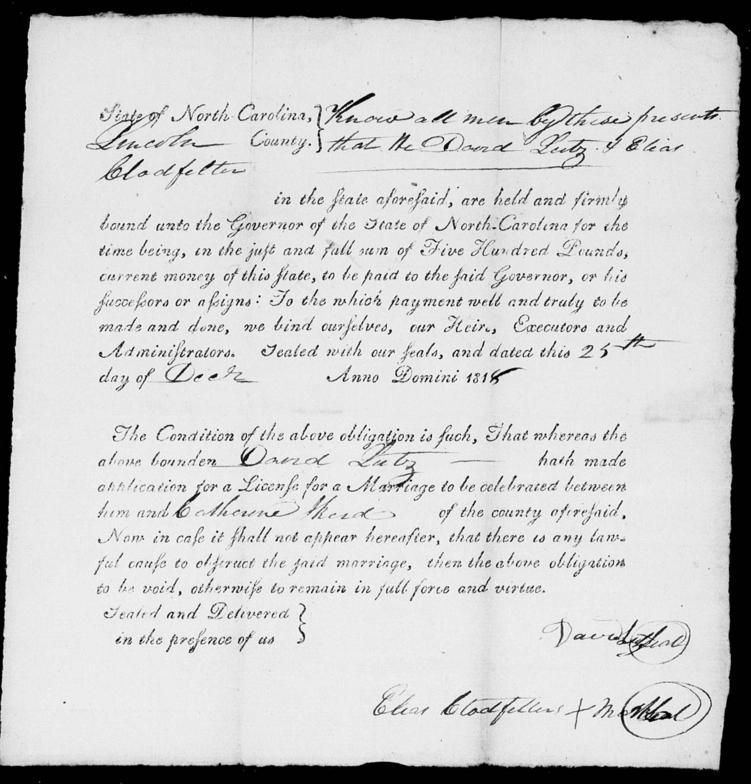 State of North-Carolina, } Know all men by these presents
Lincoln County. } that We David Lutz & Elias
Clodfelter
in the State aforesaid, are held and firmly
bound unto the Governor of the State of North-Carolina for the
time being, in the just and full sum of Five Hundred Pounds,
current money of this State, to be paid to the said Governor, or his
successors or assigns: To the which payment well and truly to be
made and done, we bind ourselves, our Heirs, Executors and
Administrators. Sealed with our seals, and dated this 25th
day of Decr Anno Domini 181
The Condition of the above obligation is such, That whereas the
above bounden David Lutz hath made
application for a License for a Marriage to be celebrated between
him and Catherine of the county aforesaid.
Now in case it shall not appear hereafter, that there is any law-
ful cause to obstruct the said marriage, then the above obligation
to be void, otherwise to remain in full force and virtue.
Sealed and Delivered }
in the presence of us }
David Lutz Seal
Elias Clodfelter X Seal